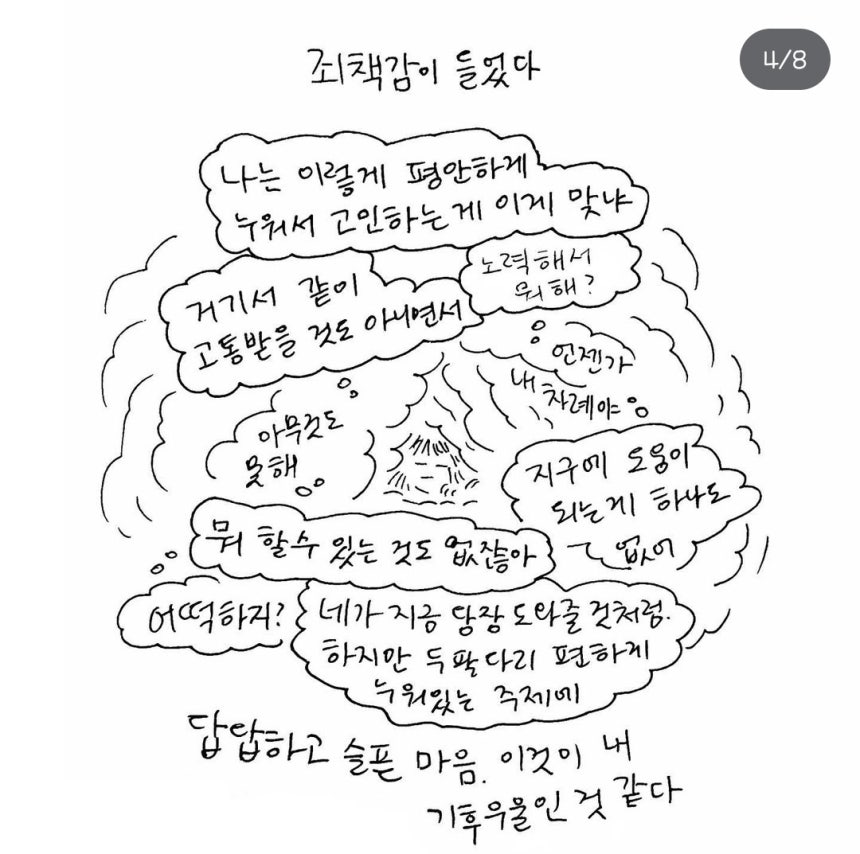 4/8
죄책감이 들었다
나는 이렇게 평안하게
누워서 고민하는게 이게 맞냐
노력해서
뭐해?
거기서 같이
고통받을 것도 아니면서
언젠가
내 차례야
아무것도
못해
지구에 도움이
되는게 하나도
없어
뭐 할수 있는 것도 없잖아
어떡하지?
네가 지금 당장 도와줄 것처럼.
하지만 두팔다리 편하게
누워있는 주제에
답답하고 슬픈 마음. 이것이 내
기후우울인 것 같다